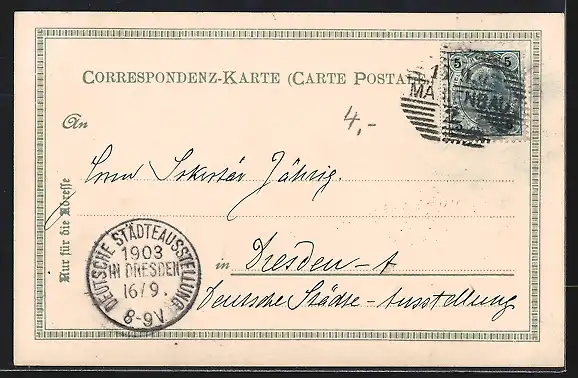 CORRESPONDENZ-KARTE (CARTE POSTA
5 5
4,-
An
Herrn Sekretär Jährig.
in Dresden-A
Deutsche Städte-Ausstellung
Nur für die Adresse
DEUTSCHE STÄDTEAUSSTELLUNG
1903
IN DRESDEN
16/9.
8-9V.